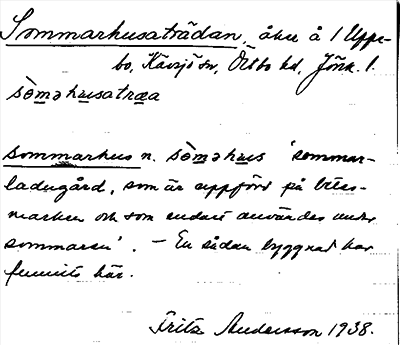 Sommarhusaträdan, åker å 1 Uppe-
bo, Kävsjö sn, Östbo hd, Jönk. l.
sòmǝhusatræa
sommarhus n. sòmǝhus 'sommar-
ladugård, som är uppförd på betes-
marken och som endast användes under
sommaren'. – En sådan byggnad har
funnits här.
Frits Andersson 1938.